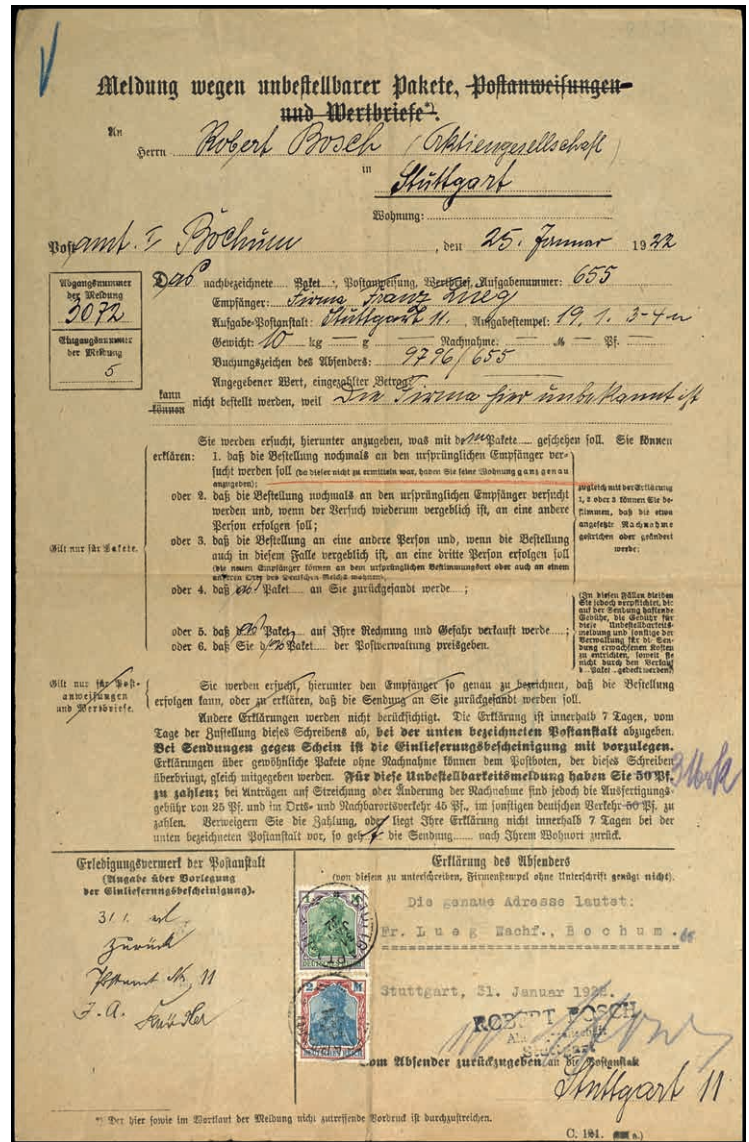 Meldung wegen unbestellbarer Pakete, Postanweisungen
und Wertbriefe*).
An
Herrn Robert Bosch (Aktiengesellschaft)
in
Stuttgart
Wohnung:
Postamt I Bochum, den 25. Januar 1922
Abgangsnummer
der Meldung
3072
Eingangsnummer
der Meldung
5
Das nachbezeichnete Paket, Postanweisung, Wertbrief, Aufgabenummer: 655
Empfänger: Firma Franz Lueg
Aufgabe-Postanstalt: Stuttgart 11., Aufgabestempel: 19. 1. 3-4 n
Gewicht: 10 kg — g — Nachnahme: — M — Pf.
Buchungszeichen des Absenders: 9796/655
Angegebener Wert, eingezahlter Betrag
kann
können nicht bestellt werden, weil Die Firma hier unbekannt ist
Sie werden ersucht, hierunter anzugeben, was mit dem Pakete geschehen soll. Sie können
erklären: 1. daß die Bestellung nochmals an den ursprünglichen Empfänger ver-
sucht werden soll (da dieser nicht zu ermitteln war, haben Sie seine Wohnung ganz genau
anzugeben);
oder 2. daß die Bestellung nochmals an den ursprünglichen Empfänger versucht
werden und, wenn der Versuch wiederum vergeblich ist, an eine andere
Person erfolgen soll;
oder 3. daß die Bestellung an eine andere Person und, wenn die Bestellung
auch in diesem Falle vergeblich ist, an eine dritte Person erfolgen soll
(die neuen Empfänger können an dem ursprünglichen Bestimmungsort oder auch an einem
anderen Orte des Deutschen Reichs wohnen);
oder 4. daß das Paket an Sie zurückgesandt werde;
oder 5. daß das Paket auf Ihre Rechnung und Gefahr verkauft werde;
oder 6. daß Sie das Paket der Postverwaltung preisgeben.
Gilt nur für Pakete.
zugleich mit der Erklärung
1, 2 oder 3 können Sie be-
stimmen, daß die etwa
angesetzte Nachnahme
gestrichen oder geändert
werde:
(In diesen Fällen bleiben
Sie jedoch verpflichtet, die
auf der Sendung haftende
Gebühr, die Gebühr für
diese Unbestellbarkeits-
meldung und sonstige der
Verwaltung für die Sen-
dung erwachsenen Kosten
zu entrichten, soweit sie
nicht durch den Verkauf
d Paket gedeckt werden)
Gilt nur für Post-
anweisungen
und Wertbriefe.
Sie werden ersucht, hierunter den Empfänger so genau zu bezeichnen, daß die Bestellung
erfolgen kann, oder zu erklären, daß die Sendung an Sie zurückgesandt werden soll.
Andere Erklärungen werden nicht berücksichtigt. Die Erklärung ist innerhalb 7 Tagen, vom
Tage der Zustellung dieses Schreibens ab, bei der unten bezeichneten Postanstalt abzugeben.
Bei Sendungen gegen Schein ist die Einlieferungsbescheinigung mit vorzulegen.
Erklärungen über gewöhnliche Pakete ohne Nachnahme können dem Postboten, der dieses Schreiben
überbringt, gleich mitgegeben werden. Für diese Unbestellbarkeitsmeldung haben Sie 50 Pf. 3 Mrk
zu zahlen; bei Anträgen auf Streichung oder Änderung der Nachnahme sind jedoch die Ausfertigungs-
gebühr von 25 Pf. und im Orts- und Nachbarortsverkehr 45 Pf., im sonstigen deutschen Verkehr 50 Pf. zu
zahlen. Verweigern Sie die Zahlung, oder liegt Ihre Erklärung nicht innerhalb 7 Tagen bei der
unten bezeichneten Postanstalt vor, so geht die Sendung nach Ihrem Wohnort zurück.
Erledigungsvermerk der Postanstalt
(Angabe über Vorlegung
der Einlieferungsbescheinigung).
31. 1.
zurück
Postamt No. 11
J. A.
Erklärung des Absenders
(von diesem zu unterschreiben, Firmenstempel ohne Unterschrift genügt nicht).
Die genaue Adresse lautet:
Fr. Lueg Nachf., Bochum.
Stuttgart, 31. Januar 1922.
ROBERT BOSCH
Stuttgart
Vom Absender zurückzugeben an die Postanstalt
Stuttgart 11
*) Der hier sowie im Wortlaut der Meldung nicht zutreffende Vordruck ist durchzustreichen.
C. 191.